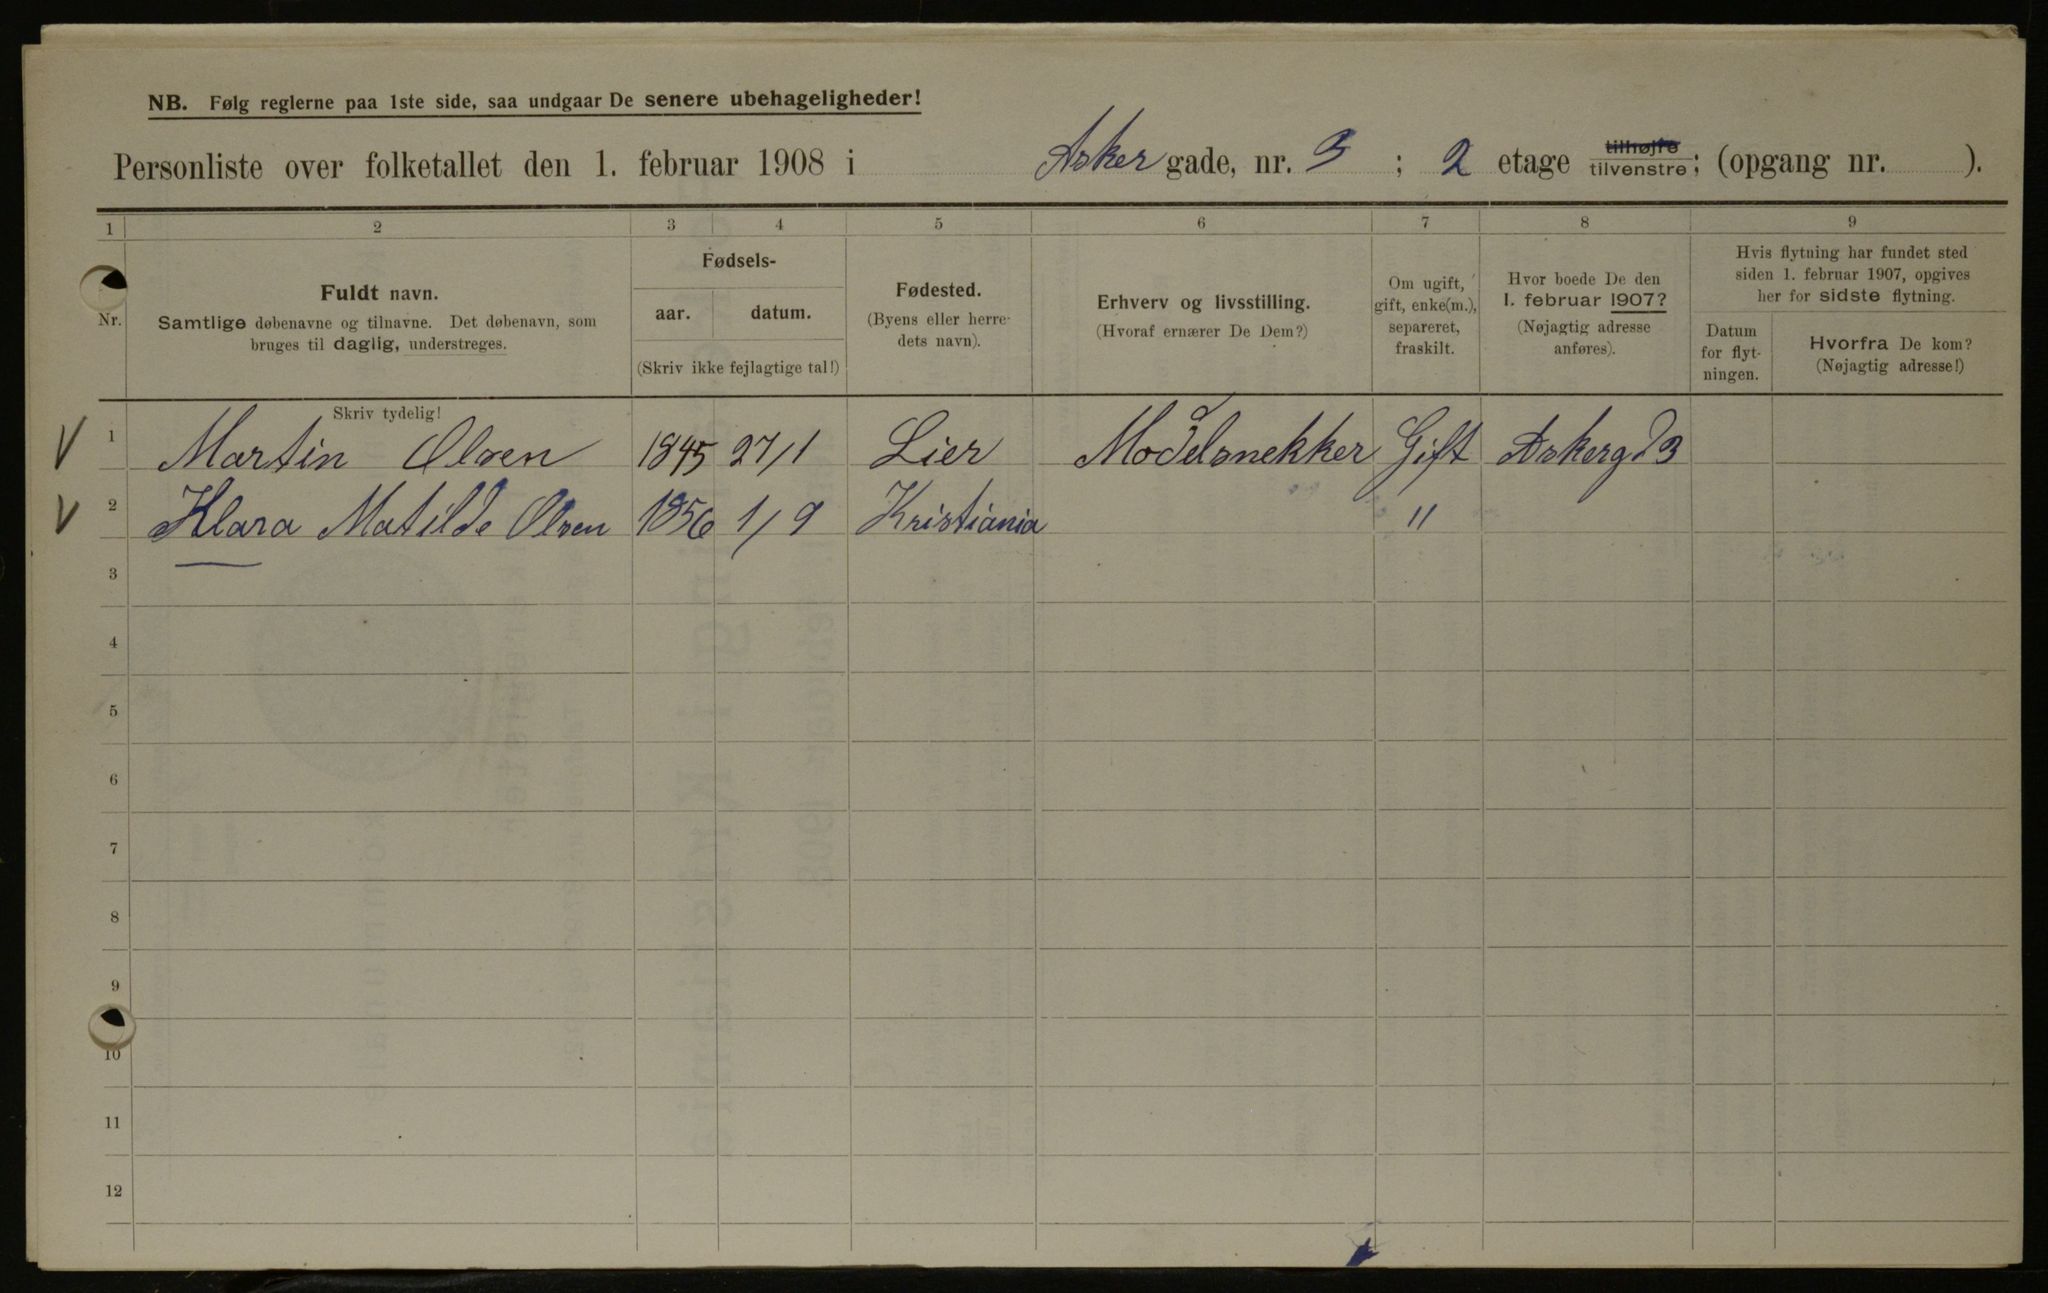 NB. Følg reglerne paa 1ste side, saa undgaar De senere ubehageligheder!
Personliste over folketallet den 1. februar 1908 i Asker gade, nr. 3 ; 2 etage tilhøjre tilvenstre; (opgang nr. ).
1 2 3 4 5 6 7 8 9
Nr.
Fuldt navn.
Samtlige døbenavne og tilnavne. Det døbenavn, som
bruges til daglig, understreges.
Fødsels-
aar. datum.
(Skriv ikke fejlagtige tal!)
Fødested.
(Byens eller herre-
dets navn).
Erhverv og livsstilling.
(Hvoraf ernærer De Dem?)
Om ugift,
gift, enke(m.),
separeret,
fraskilt.
Hvor boede De den
1. februar 1907?
(Nøjagtig adresse
anføres).
Hvis flytning har fundet sted
siden 1. februar 1907, opgives
her for sidste flytning.
Datum
for flyt-
ningen.
Hvorfra De kom?
(Nøjagtig adresse!)
Skriv tydelig!
1 Martin Olsen 1845 27/1 Lier Modelsnekker Gift Askergd 3
2 Klara Matilde Olsen 1856 1/9 Kristiania "
3
4
5
6
7
8
9
10
11
12